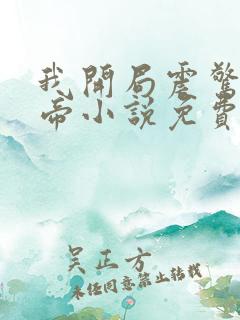 我開局震驚
帝小說免費
吴正方
未经同意禁止转载